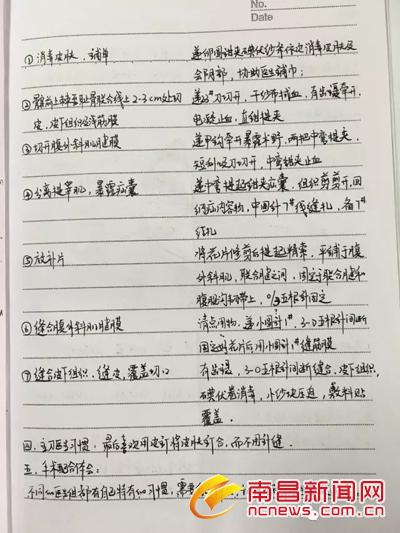 No.
Date
①消毒皮肤、铺单
递卵圆钳夹碘伏纱布依次消毒皮肤及
会阴部，协助医生铺巾；
②髂前上棘至耻骨联合线上2-3cm处切
递23#刀切开，干纱布拭血，有齿镊牵开
皮、皮下组织及浅筋膜
电凝止血，直钳提夹
③切开腹外斜肌腱膜
递甲钩牵开暴露术野，两把中弯提夹，
短刀切开，中弯钳止血
④分离提睾肌，暴露疝囊
递中弯提起钳夹疝囊，组织剪剪开，回
纳疝内容物，中圆针7#线缝扎，备7#
结扎
⑤放补片
将花片修剪后提起精索，平铺于腹
外斜肌，联合腱之间，固定于联合腱和
腹股沟韧带上，0/3号可吸收线固定
⑥缝合腹外斜肌腱膜
清点用物，递小圆针1#，3-0可吸收间断
固定好花片后用小圆针1#缝筋膜
⑦缝合皮下组织，缝皮，覆盖切口
有齿镊，3-0号可吸收间断缝合皮下组织，
碘伏卷消毒，小纱块压迫，敷料贴
覆盖.
四、主刀医生习惯：最后喜欢用皮钉将皮肤钉合，而不用针缝.
五、手术配合体会：
不同的医生组都有自己特有的习惯，需
南昌新闻网
ncnews.com.cn